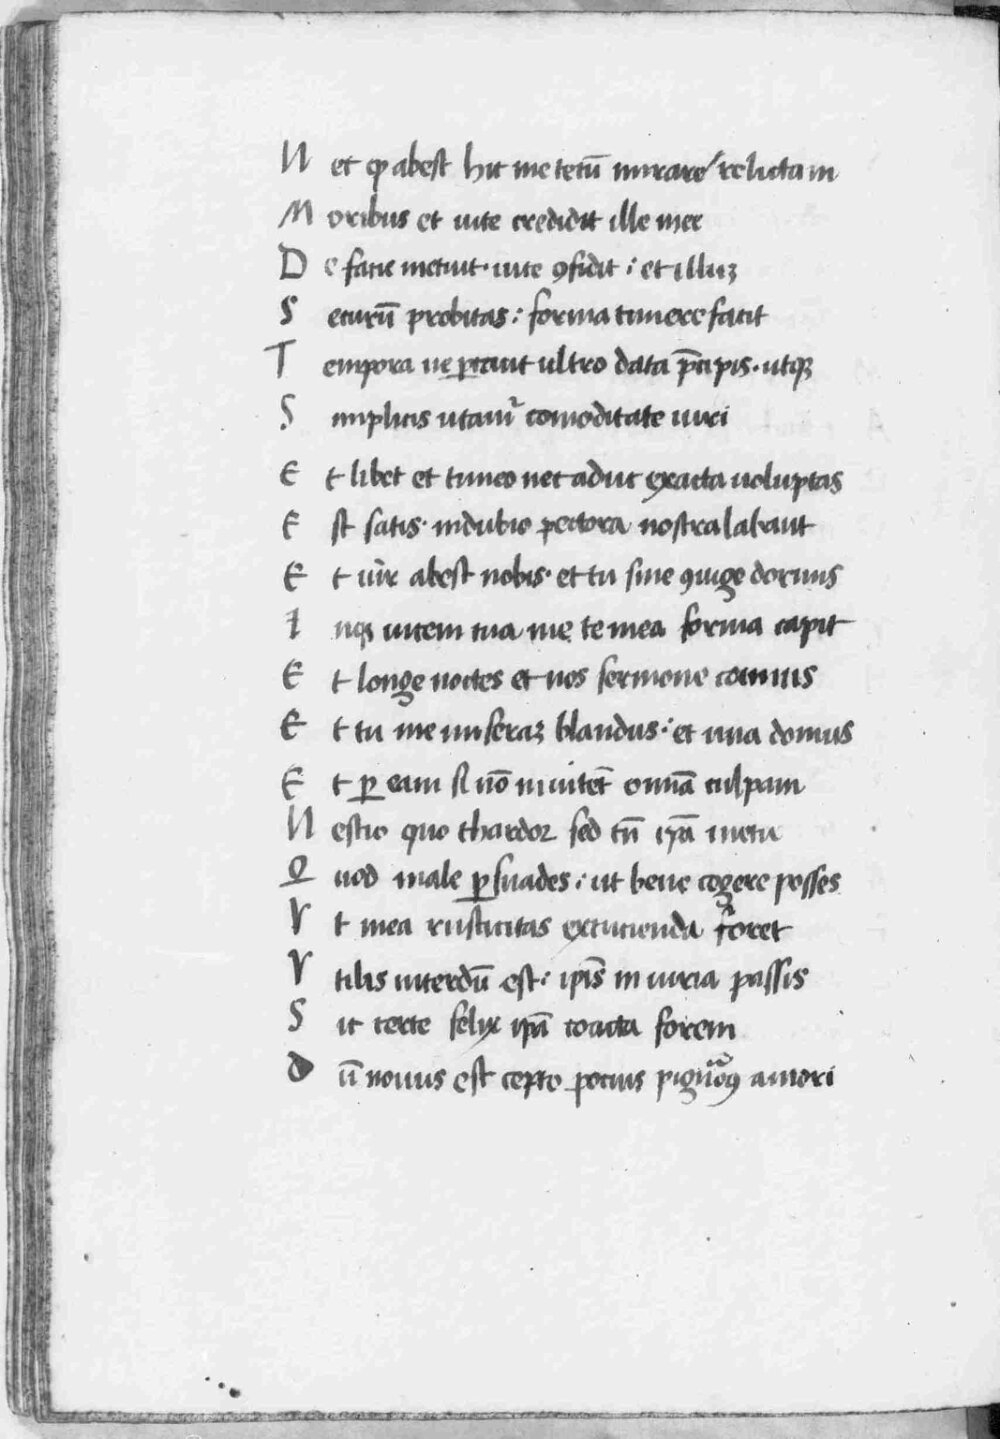 N et ꝙ abest hic me tecū mirare relictam
M oribus et uite credidit ille mee
D e facie metuit · uite ꝯfidit : et illuꝫ
S ecurū probitas : forma timere facit
T empora ne ꝑeant ultro data p̄cipis · utqꝫ
S implicis utamur̄ comoditate uiri
E t libet et timeo nec adhuc exacta uoluptas
E st satis · in dubio pectora nostra labant
E t uir abest nobis · et tu sine ꝯiuge dormis
I nqꝫ uicem tua me te mea forma capit
E t longe noctes et nos sermone coimus
E t tu me miseraꝫ blandus : et una domus
E t ꝑ eam si nō inuitēt omnīa culpam
N escio quo thardor sed tn̄ ip̄a metu
Q uod male ꝑsuades : ut bene cogere posses
V t mea rusticitas excucienda foret
V tilis interdū est : ip̄is iniuria passis
S ic certe felix ip̄a coacta forem
D ū nouus est cepto pocius amori